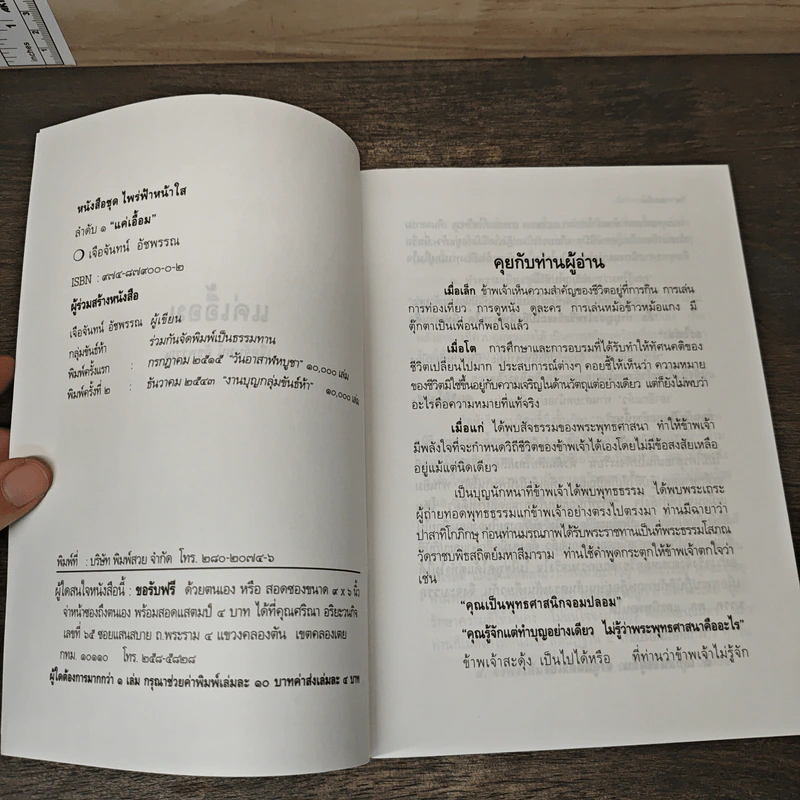 หนังสือชุด ไพร่ฟ้าหน้าใส
ลำดับ ๑ "แค่เอื้อม"
เจือจันทน์ อัชพรรณ
ISBN : ๙๗๔-๘๗๙๐๐-๐-๒
ผู้ร่วมสร้างหนังสือ
เจือจันทน์ อัชพรรณ ผู้เขียน
กลุ่มขันธ์ห้า ร่วมกันจัดพิมพ์เป็นธรรมทาน
พิมพ์ครั้งแรก : กรกฎาคม ๒๕๑๕ "วันอาสาฬหบูชา" ๑๐,๐๐๐ เล่ม
พิมพ์ครั้งที่ ๒ : ธันวาคม ๒๕๔๓ "งานบุญกลุ่มขันธ์ห้า" ๑๐,๐๐๐ เล่ม
พิมพ์ที่ : บริษัท พิมพ์สวย จำกัด โทร. ๒๘๐-๒๐๗๔-๖
ผู้ใดสนใจหนังสือนี้ : ขอรับฟรี ด้วยตนเอง หรือ สอดซองขนาด ๙ x ๖ นิ้ว
จ่าหน้าซองถึงตนเอง พร้อมสอดแสตมป์ ๔ บาท ได้ที่คุณศริณา อริยะวนกิจ
เลขที่ ๖๕ ซอยแสนสบาย ถ.พระราม ๔ แขวงคลองตัน เขตคลองเตย
กทม. ๑๐๑๑๐ โทร. ๒๕๘-๕๘๒๘
ผู้ใดต้องการมากกว่า ๑ เล่ม กรุณาช่วยค่าพิมพ์เล่มละ ๑๐ บาทค่าส่งเล่มละ ๔ บาท
คุยกับท่านผู้อ่าน
เมื่อเล็ก ข้าพเจ้าเห็นความสำคัญของชีวิตอยู่ที่การกิน การเล่น
การท่องเที่ยว การดูหนัง ดูละคร การเล่นหม้อข้าวหม้อแกง มี
ตุ๊กตาเป็นเพื่อนก็พอใจแล้ว
เมื่อโต การศึกษาและการอบรมที่ได้รับทำให้ทัศนคติของ
ชีวิตเปลี่ยนไปมาก ประสบการณ์ต่างๆ คอยชี้ให้เห็นว่า ความหมาย
ของชีวิตมิใช่ขึ้นอยู่กับความเจริญในด้านวัตถุแต่อย่างเดียว แต่ก็ยังไม่พบว่า
อะไรคือความหมายที่แท้จริง
เมื่อแก่ ได้พบสัจธรรมของพระพุทธศาสนา ทำให้ข้าพเจ้า
มีพลังใจที่จะกำหนดวิถีชีวิตของข้าพเจ้าได้เองโดยไม่มีข้อสงสัยเหลือ
อยู่แม้แต่นิดเดียว
เป็นบุญนักหนาที่ข้าพเจ้าได้พบพุทธธรรม ได้พบพระเถระ
ผู้ถ่ายทอดพุทธธรรมแก่ข้าพเจ้าอย่างตรงไปตรงมา ท่านมีฉายาว่า
ปาสาทิโกภิกษุ ก่อนท่านมรณภาพได้รับพระราชทานเป็นที่พระธรรมโสภณ
วัดราชบพิธสถิตย์มหาสีมาราม ท่านใช้คำพูดกระตุกให้ข้าพเจ้าตกใจว่า
เช่น
"คุณเป็นพุทธศาสนิกจอมปลอม"
"คุณรู้จักแต่ทำบุญอย่างเดียว ไม่รู้ว่าพระพุทธศาสนาคืออะไร"
ข้าพเจ้าสะดุ้ง เป็นไปได้หรือ ที่ท่านว่าข้าพเจ้าไม่รู้จัก